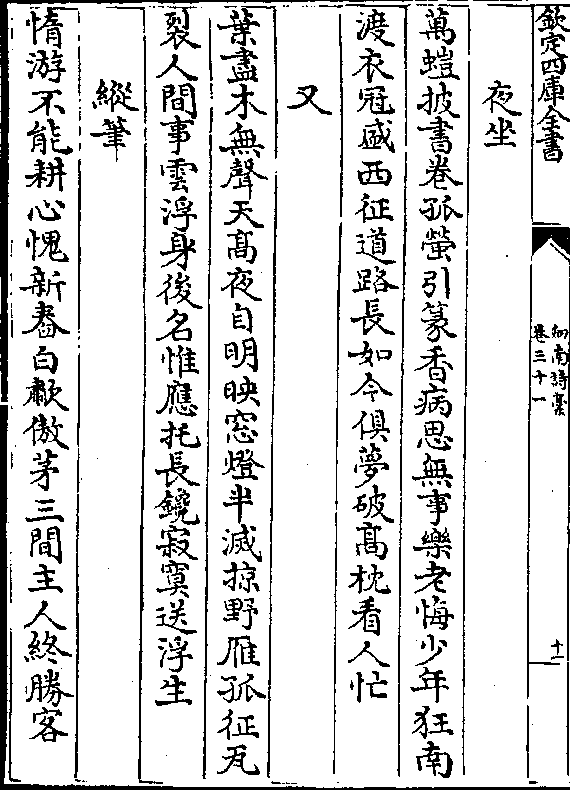 欽定四庫全書
劔南詩藁
卷三十一
十一
夜坐
萬螘披書卷孤螢引篆香病思無事樂老悔少年狂南
渡衣冠盛西征道路長如今俱夢破髙枕看人忙
又
葉盡木無聲天髙夜自明映窓燈半滅掠野雁孤征瓦
裂人間事雲浮身後名惟應托長鑱寂寞送浮生
縱筆
惰游不能耕心愧新舂白歗傲茅三間主人終勝客